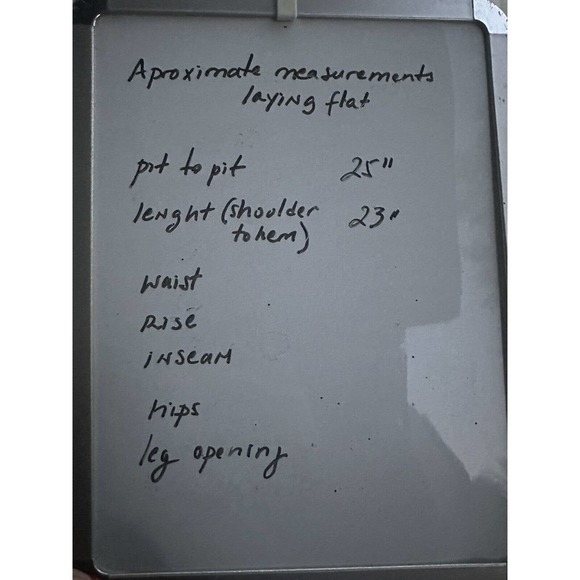 Aproximate measurements
laying flat
pit to pit 25"
lenght (shoulder 23"
to hem)
waist
Rise
inseam
hips
leg opening